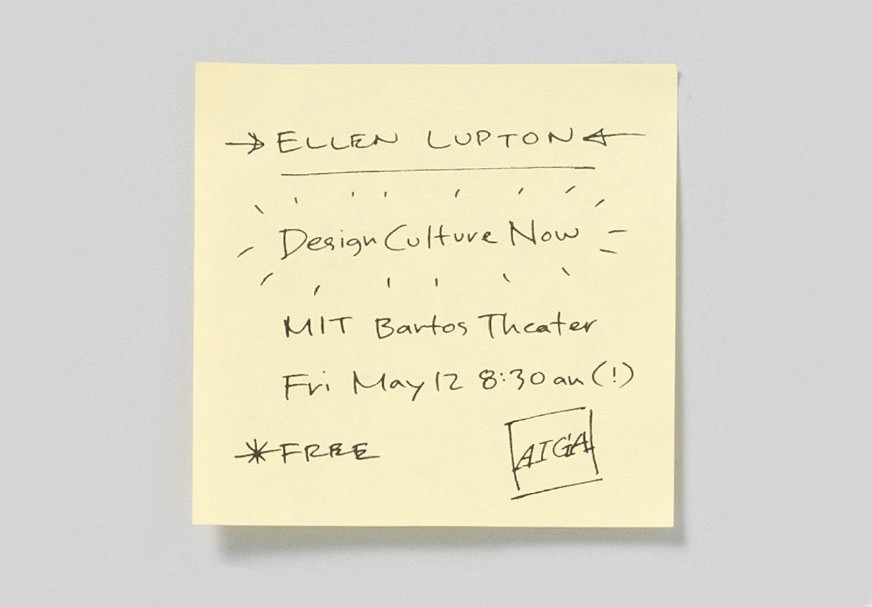 → ELLEN LUPTON ←
Design Culture Now
MIT Bartos Theater
Fri May 12 8:30am (!)
*FREE
AIGA